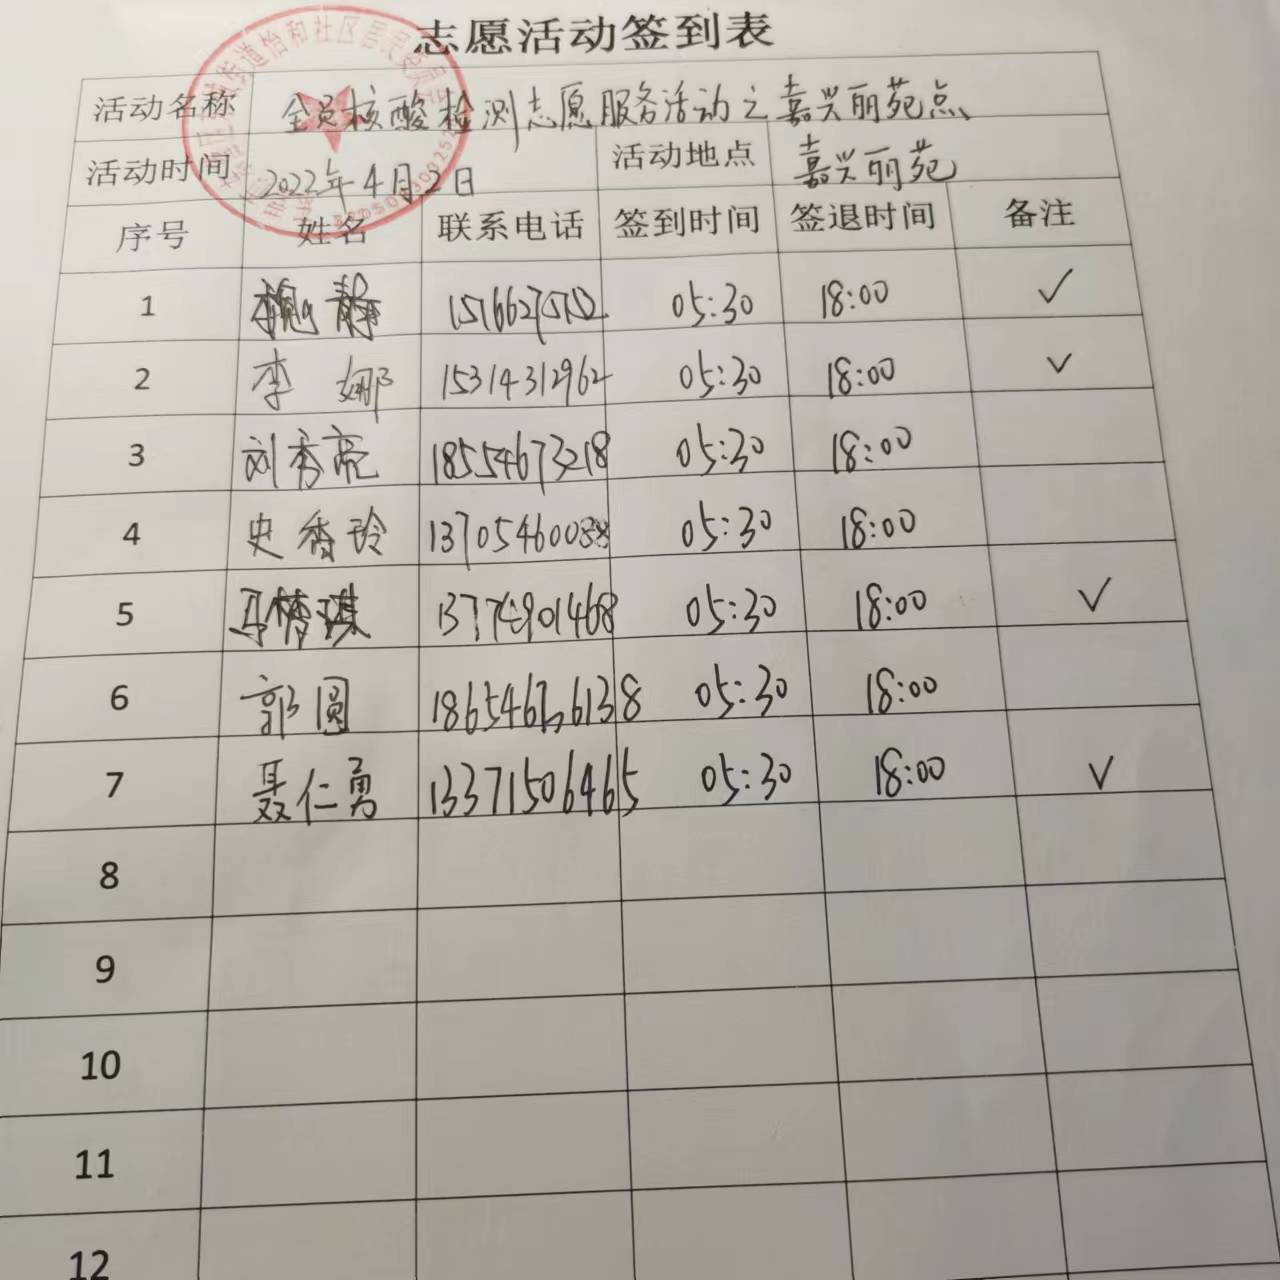 志愿活动签到表
活动名称 全员核酸检测志愿服务活动之嘉兴丽苑点
活动时间 2022年4月2日 活动地点 嘉兴丽苑
序号 姓名 联系电话 签到时间 签退时间 备注
1 静 05:30 18:00 ✓
2 李娜 15314312962 05:30 18:00 ✓
3 刘秀亮 18554673218 05:30 18:00
4 史香玲 13705460088 05:30 18:00
5 马梦琪 05:30 18:00 ✓
6 郭圆 05:30 18:00
7 聂仁勇 13371506465 05:30 18:00 ✓
8
9
10
11
12